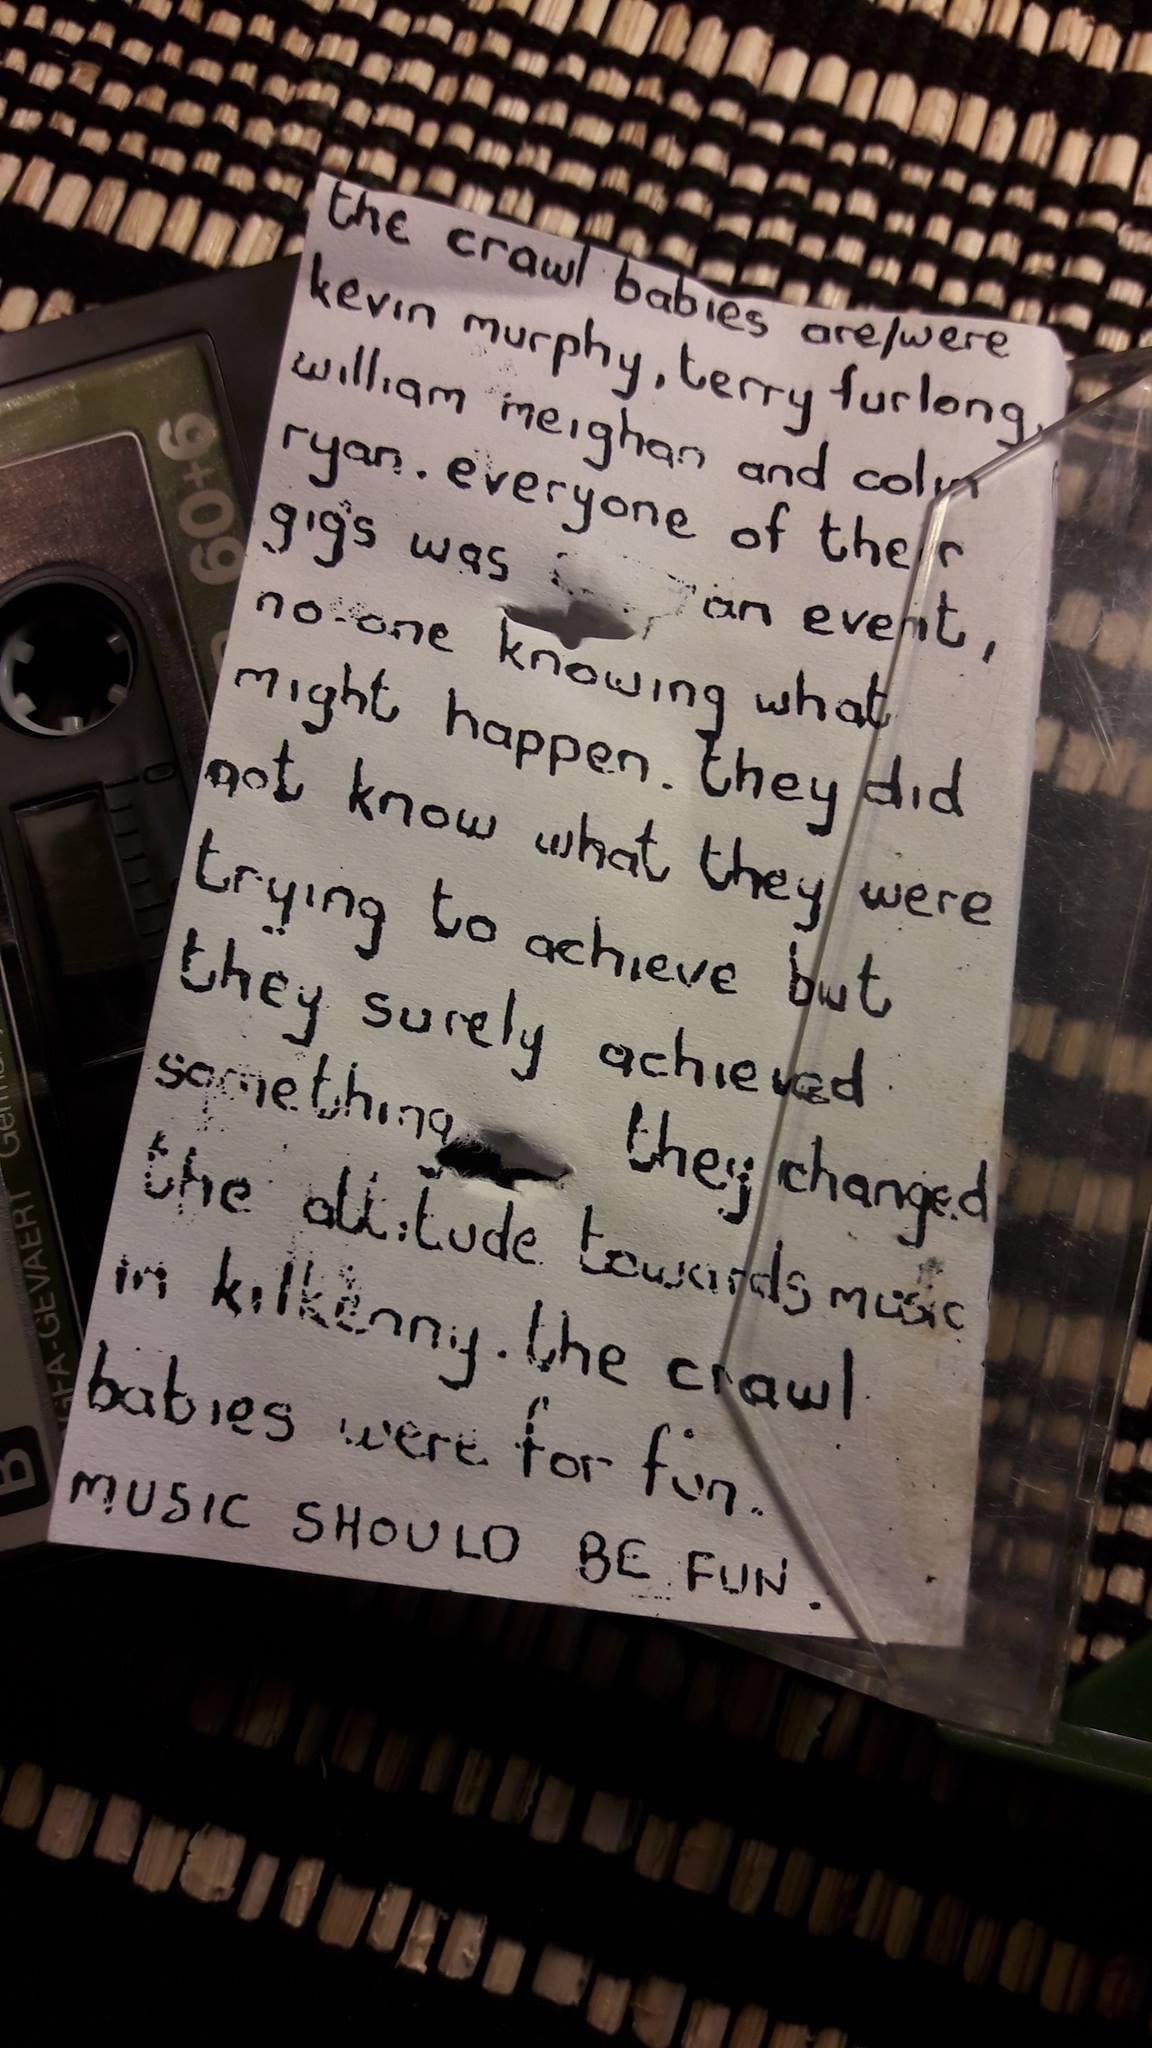 the crawl babies are/were
kevin murphy, terry furlong,
william meighan and colin
ryan. everyone of their
gigs was an event,
no-one knowing what
might happen. they did
not know what they were
trying to achieve but
they surely achieved
something they changed
the attitude towards music
in kilkenny. the crawl
babies were for fun.
MUSIC SHOULD BE FUN.
60+6
AGFA-GEVAERT Germany
B
0